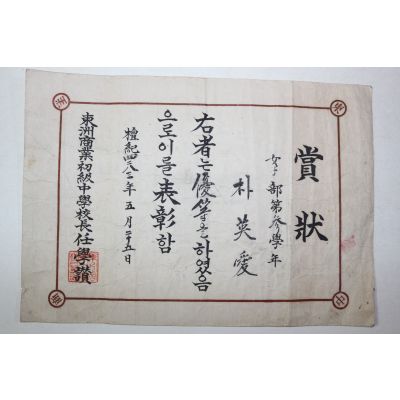 賞狀
女子部第參學年
朴英愛
右者는優等을하였음
으로이를表彰함
檀紀四二八二年五月二十五日
東洲商業初級中學校長任學讚